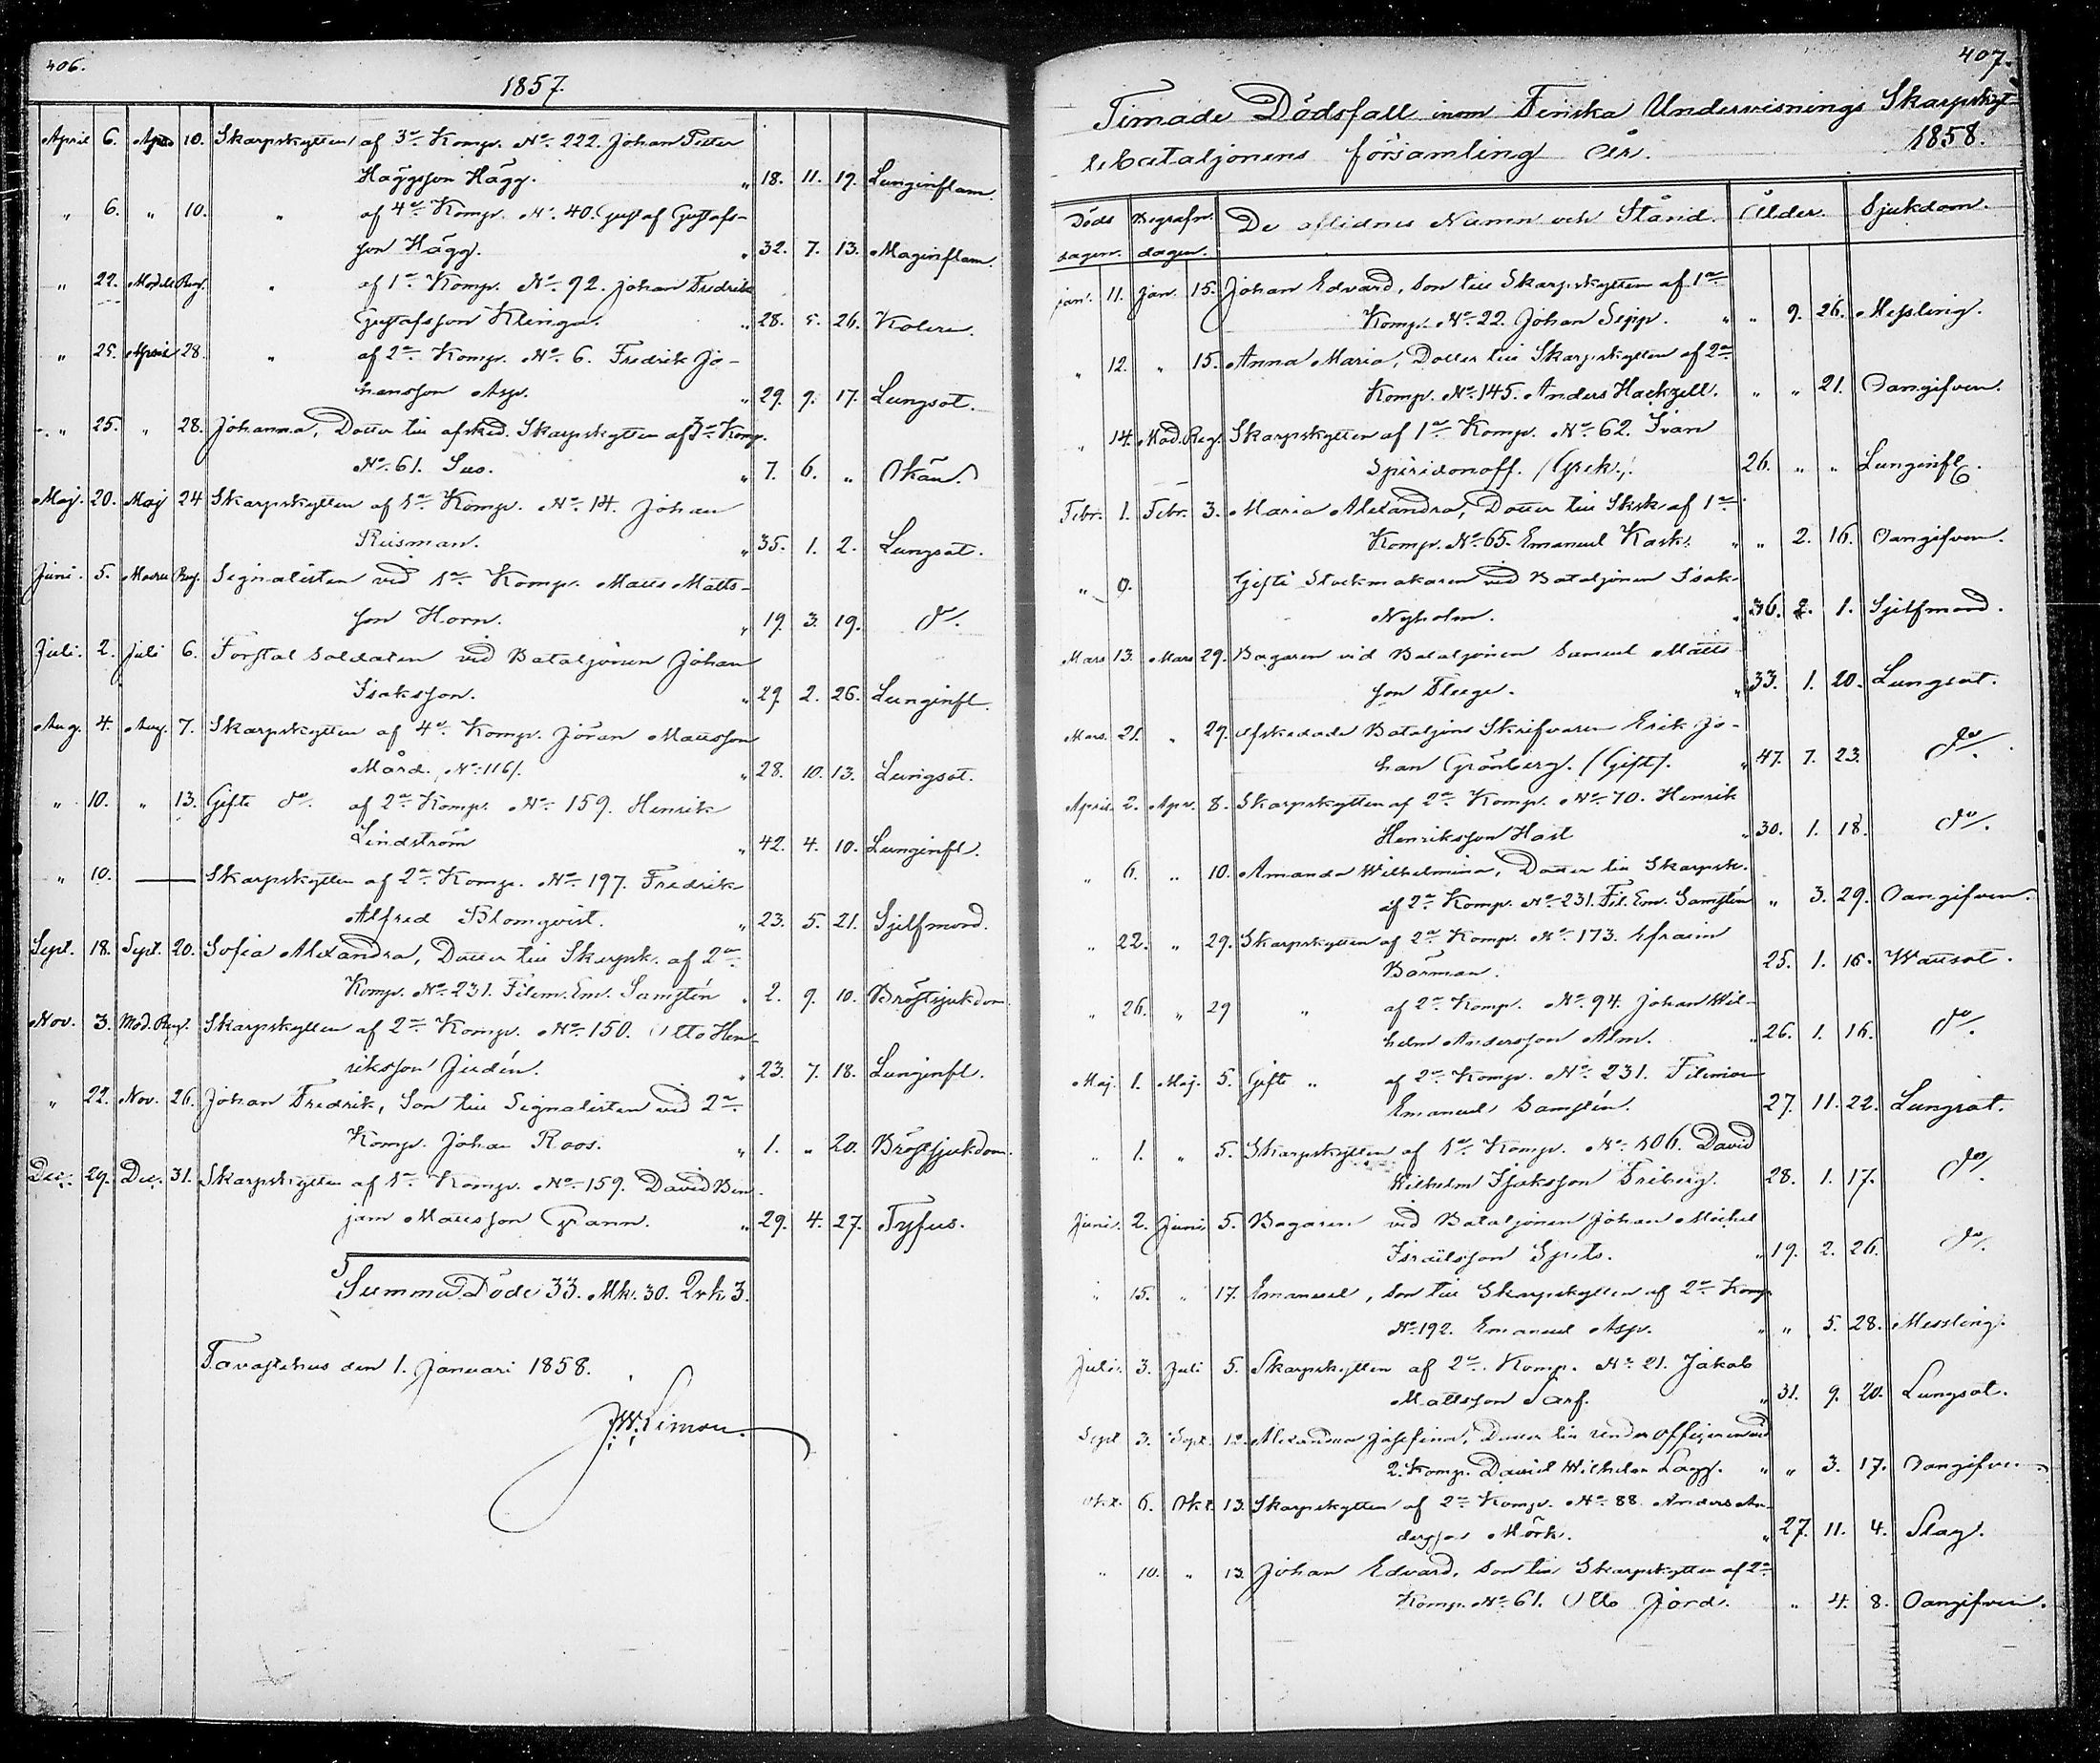 406.
1857.
April 6. April 10. Skarpskytten af 3e Komp. No. 222. Johan Petter
Häggsson Hägg. " 18. 11. 19. Lunginflam.
" 6. " 10. " af 4e Komp. No. 40. Gustaf Gustafs-
son Hägg. " 32. 7. 13. Maginflam.
" 22. Reg. " af 1a Komp. No. 92. Johan Fredrik
Gustafsson Klinga. " 28. 5. 26. Kolera.
" 25. April 28. " af 2a Komp. No. 6. Fredrik Jo-
hansson Asp. " 29. 9. 17. Lungsot.
" 25. " 28. Johanna, Dotter till afsked. Skarpskytten af 3e Komp.
No. 61. Sus. " 7. 6. " Okän.
Maj. 20. Maj 24 Skarpskytten af 1a Komp. No. 14. Johan
Riisman. " 35. 1. 2. Lungsot.
Juni. 5. Reg. Signalisten vid 1a Komp. Matts Matts-
son Horn. " 19. 3. 19. do.
Juli. 2. Juli 6. Forstal Soldaten vid Bataljonen Johan
Isaksson. " 29. 2. 26. Lunginfl.
Aug. 4. Aug. 7. Skarpskytten af 4e Komp. Jöran Mattsson
Mård. No. 116/. " 28. 10. 13. Lungsot.
" 10. " 13. Gifte do. af 2a Komp. No. 159. Henrik
Lindström " 42. 4. 10. Lunginfl.
" 10. — Skarpskytten af 2a Komp. No. 197. Fredrik
Alfred Blomqvist. " 23. 5. 21. Sjelfmord.
Sept. 18. Sept. 20. Sofia Alexandra, Dotter till Skarpsk. af 2a
Komp. No. 231. Filem. Em. Samstén " 2. 9. 10. Bröstsjukdom.
Nov. 3. Mod. Reg. Skarpskytten af 2a Komp. No. 150. Otto Hen-
riksson Judén. " 23. 7. 18. Lunginfl.
" 22. Nov. 26. Johan Fredrik, Son till Signalisten vid 2a
Komp. Johan Roos. " 1. " 20. Bröstsjukdom.
Dec. 29. Dec. 31. Skarpskytten af 1a Komp. No. 159. David Ben-
jam Mattsson Grann. " 29. 4. 27. Tyfus.
Summa Döde 33. Mk. 30. Qvk. 3.
Tavastehus den 1. Januari 1858.
J.W. Limon.
407.
Timade Dödsfall inom Finska Undervisnings Skarpskyt-
tebataljonens församling År. 1858.
Döds dagen. Begrafn. dagen. De aflidnes Namn och Stånd. Ålder. Sjukdom.
Jan. 11. Jan. 15. Johan Edvard, Son till Skarpskytten af 1a
Komp. No. 22. Johan Sepp. " " 9. 26. Messling.
" 12. " 15. Anna Maria, Dotter till Skarpskytten af 2a
Komp. No. 145. Anders Hackzell. " " 21. Oangifven.
" 14. Mod. Reg. Skarpskytten af 1a Komp. No. 62. Ivan
Spiridonoff. /Grek./. 26. " " Lunginfl.
Febr. 1. Febr. 3. Maria Alexandra, Dotter till Sksk. af 1a
Komp. No. 65. Emanuel Kask. " " 2. 16. Oangifven.
" 9. Gifte Stockmakaren vid Bataljonen Isak
Nyholm. " 36. 2. 1. Sjelfmord.
Mars 13. Mars 29. Bagaren vid Bataljonen Samuel Matts
son Fluge. " 33. 1. 20. Lungsot.
Mars. 21. " 29. Afskedade Bataljons Skrifvaren Erik Jo-
han Grönberg. /Gift/. " 47. 7. 23. do.
April. 2. Apr. 8. Skarpskytten af 2a Komp. No. 70. Henrik
Henriksson Hast " 30. 1. 18. do.
" 6. " 10. Amanda Wilhelmina, Dotter till Skarpsk.
af 2a Komp. No. 231. Fil. Em. Samstén " 3. 29. Oangifven.
" 22. " 29. Skarpskytten af 2a Komp. No. 173. Efraim
Börman. 25. 1. 16. Wattsot.
" 26. " 29 " af 2a Komp. No. 94. Johan Wil-
helm Andersson Alm. " 26. 1. 16. do.
Maj. 1. Maj. 5. Gifte " af 2a Komp. No. 231. Filemon
Emanuel Samstén. 27. 11. 22. Lungsot.
" 1. " 5. Skarpskytten af 1a Komp. No. 106. David
Wilhelm Isaksson Friberg. 28. 1. 17. do.
Juni. 2. Juni. 5. Bagaren vid Bataljonen Johan Michel
Israëlsson Spets. " 19. 2. 26. do.
" 15. " 17. Emanuel, Son till Skarpskytten af 2a Komp
No. 192. Emanuel Asp. " " 5. 28. Messling.
Juli. 3. Juli 5. Skarpskytten af 2a Komp. No. 21. Jakob
Mattsson Sarf. " 31. 9. 20. Lungsot.
Sept 3. Sept. 12. Alexandra Josefina, Dotter till Under officeren vid
2. Komp. David Wilhelm Lagg. " " 3. 17. Oangifven.
Okt. 6. Okt. 13. Skarpskytten af 2a Komp. No. 88. Anders An-
dersson Mörk. " 27. 11. 4. Slag.
" 10. " 13. Johan Edvard, Son till Skarpskytten af 2a
Komp. No. 61. Otto Jord. " 4. 8. Oangifven.